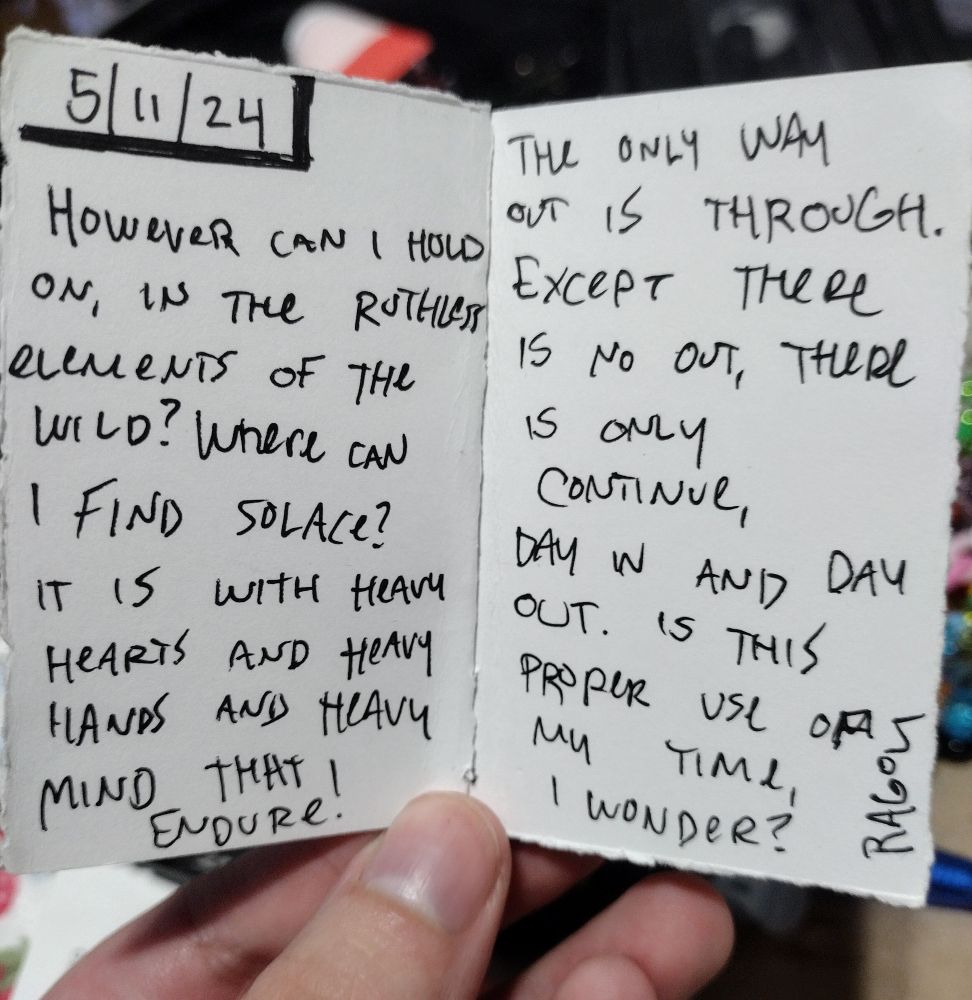 5/11/24
HOWEVER CAN I HOLD
ON, IN THE RUTHLESS
ELEMENTS OF THE
WILD? WHERE CAN
I FIND SOLACE?
IT IS WITH HEAVY
HEARTS AND HEAVY
HANDS AND HEAVY
MIND THAT I
ENDURE.
THE ONLY WAY
OUT IS THROUGH.
EXCEPT THERE
IS NO OUT, THERE
IS ONLY
CONTINUE,
DAY IN AND DAY
OUT. IS THIS
PROPER USE OF
MY TIME,
I WONDER?